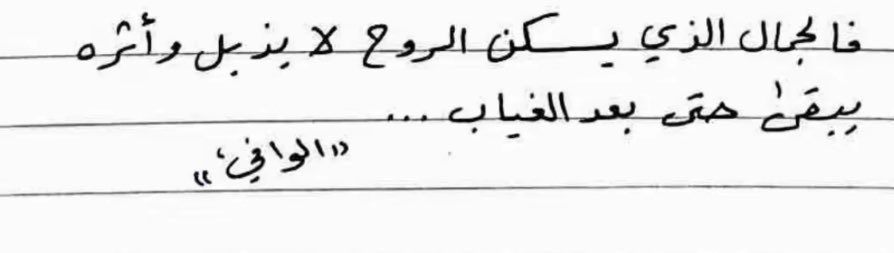 فالجمال الذي يسكن الروح لا يذبل وأثره
يبقىٰ حتى بعد الغياب ...
"الوافي"